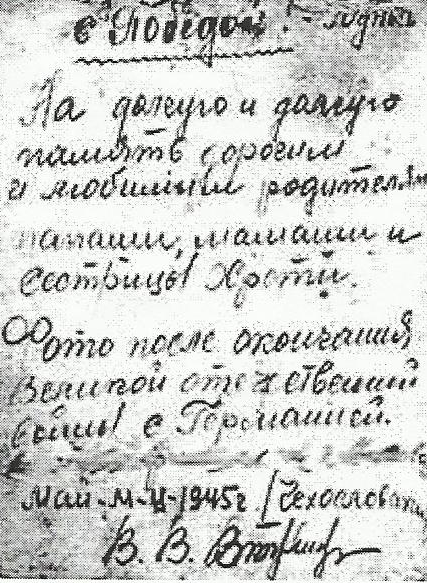 с Победой! -
На долгую и долгую
память дорогим
и любимым родителям
папаши, мамаши и
сестрицы Хрсти.
Фото после окончания
Великой отечественной
войны с Германией.
Май-м-ц-1945г
В. В.